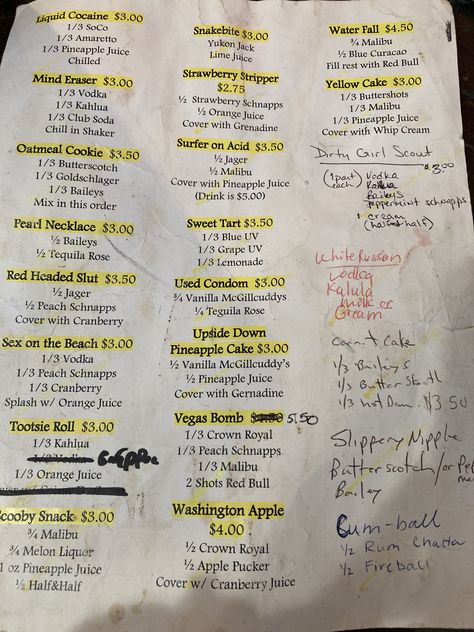 Liquid Cocaine $3.00
1/3 SoCo
1/3 Amaretto
1/3 Pineapple Juice
Chilled
Mind Eraser $3.00
1/3 Vodka
1/3 Kahlua
1/3 Club Soda
Chill in Shaker
Oatmeal Cookie $3.50
1/3 Butterscotch
1/3 Goldschlager
1/3 Baileys
Mix in this order
Pearl Necklace $3.00
½ Baileys
½ Tequila Rose
Red Headed Slut $3.50
½ Jager
½ Peach Schnapps
Cover with Cranberry
Sex on the Beach $3.00
1/3 Vodka
1/3 Peach Schnapps
1/3 Cranberry
Splash w/ Orange Juice
Tootsie Roll $3.00
1/3 Kahlua
1/3 Orange Juice
cooby Snack $3.00
¾ Malibu
¾ Melon Liquor
1 oz Pineapple Juice
½ Half&Half
Snakebite $3.00
Yukon Jack
Lime Juice
Strawberry Stripper
$2.75
½ Strawberry Schnapps
½ Orange Juice
Cover with Grenadine
Surfer on Acid $3.50
½ Jager
½ Malibu
Cover with Pineapple Juice
(Drink is $5.00)
Sweet Tart $3.50
1/3 Blue UV
1/3 Grape UV
1/3 Lemonade
Used Condom $3.00
¾ Vanilla McGillcuddys
¼ Teguila Rose
Upside Down
Pineapple Cake $3.00
½ Vanilla McGillcuddy's
½ Pineapple Juice
Cover with Gernadine
Vegas Bomb 5.50
1/3 Crown Royal
1/3 Peach Schnapps
1/3 Malibu
2 Shots Red Bull
Washington Apple
$4.00
½ Crown Royal
½ Apple Pucker
Cover w/ Cranberry Juice
Water Fall $4.50
¾ Malibu
½ Blue Curacao
Fill rest with Red Bull
Yellow Cake $3.00
1/3 Buttershots
1/3 Malibu
1/3 Pineapple Juice
Cover with Whip Cream
Dirty Girl Scout
$3.00
(1 part each) Vodka
Kalua
Baileys
Peppermint schnapps
1 cream
(half&half)
White Russian
Vodka
Kalula
milk or
Cream
Carrot Cake
1/3 Baileys
1/3 Butter
1/3 Hot Dam $3.50
Slippery Nipple
Butterscotch/or
Bailey
Cum-ball
½ Rum Chatta
½ Fireball